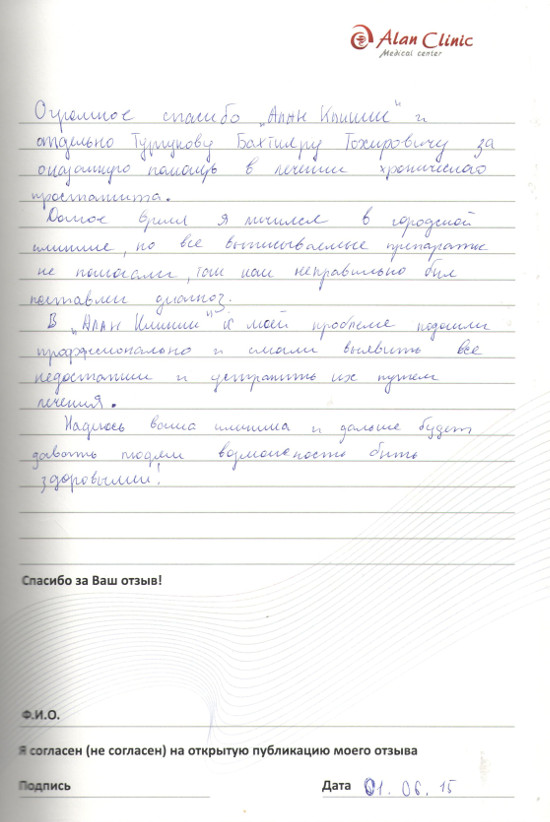 Alan Clinic
Medical center
Огромное спасибо „Алан Клиник" и
отдельно Туртукову Бахтияру Тохировичу за
оказанную помощь в лечении хронического
простатита.
Долгое время я лечился в городской
клинике, но все выписываемые препараты
не помогали, так как неправильно был
поставлен диагноз.
В „Алан Клиник" к моей проблеме подошли
профессионально и смогли выявить все
недостатки и устранить их путем
лечения.
Надеюсь ваша клиника и дальше будет
давать людям возможность быть
здоровыми!
Спасибо за Ваш отзыв!
Ф.И.О.
Я согласен (не согласен) на открытую публикацию моего отзыва
Подпись Дата 01.06.15